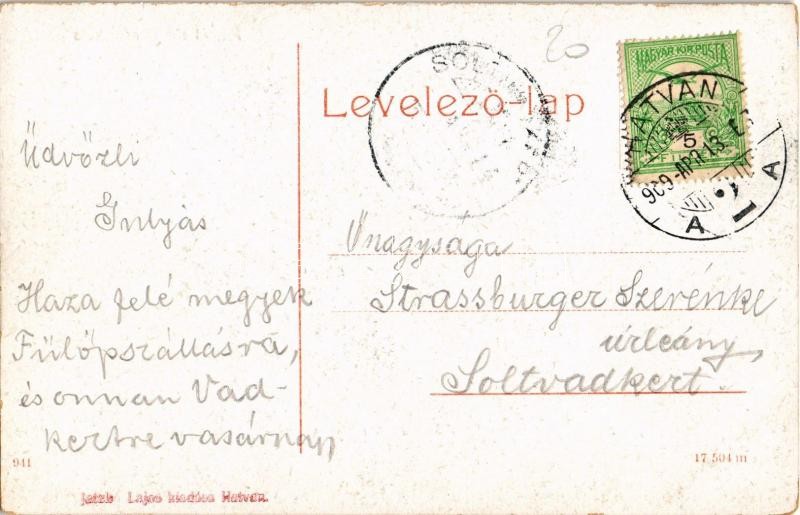 20
Levelező-lap
MAGYAR KIR. POSTA
HATVAN
5
909 APR 13
A A
Üdvözli
Gulyás
Haza felé megyek
Fülöpszállásra,
és onnan Vad-
kertre vasárnap
Őnagysága
Strassburger Szerénke
úrleány,
Soltvadkert.
941
17 504 m
Lajos kiadása Hatvan.